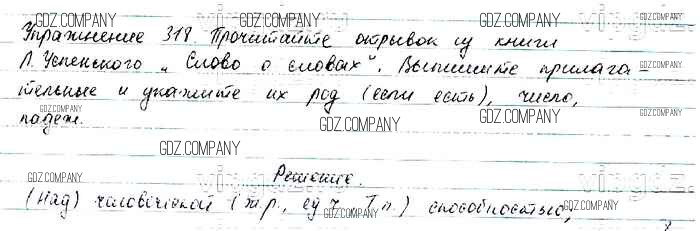 GDZ.COMPANY GDZ.COMPANY GDZ.COMPANY
Упражнение 318. Прочитайте отрывок из книги
Л. Успенского „Слово о словах". Выпишите прилага-
тельные и укажите их род (если есть), число,
падеж.
GDZ.COMPANY GDZ.COMPANY GDZ.COMPANY
GDZ.COMPANY
Решение.
(Над) человеческой (ж.р., ед.ч., Т.п.) способностью,
GDZ.COMPANY GDZ.COMPANY GDZ.COMPANY